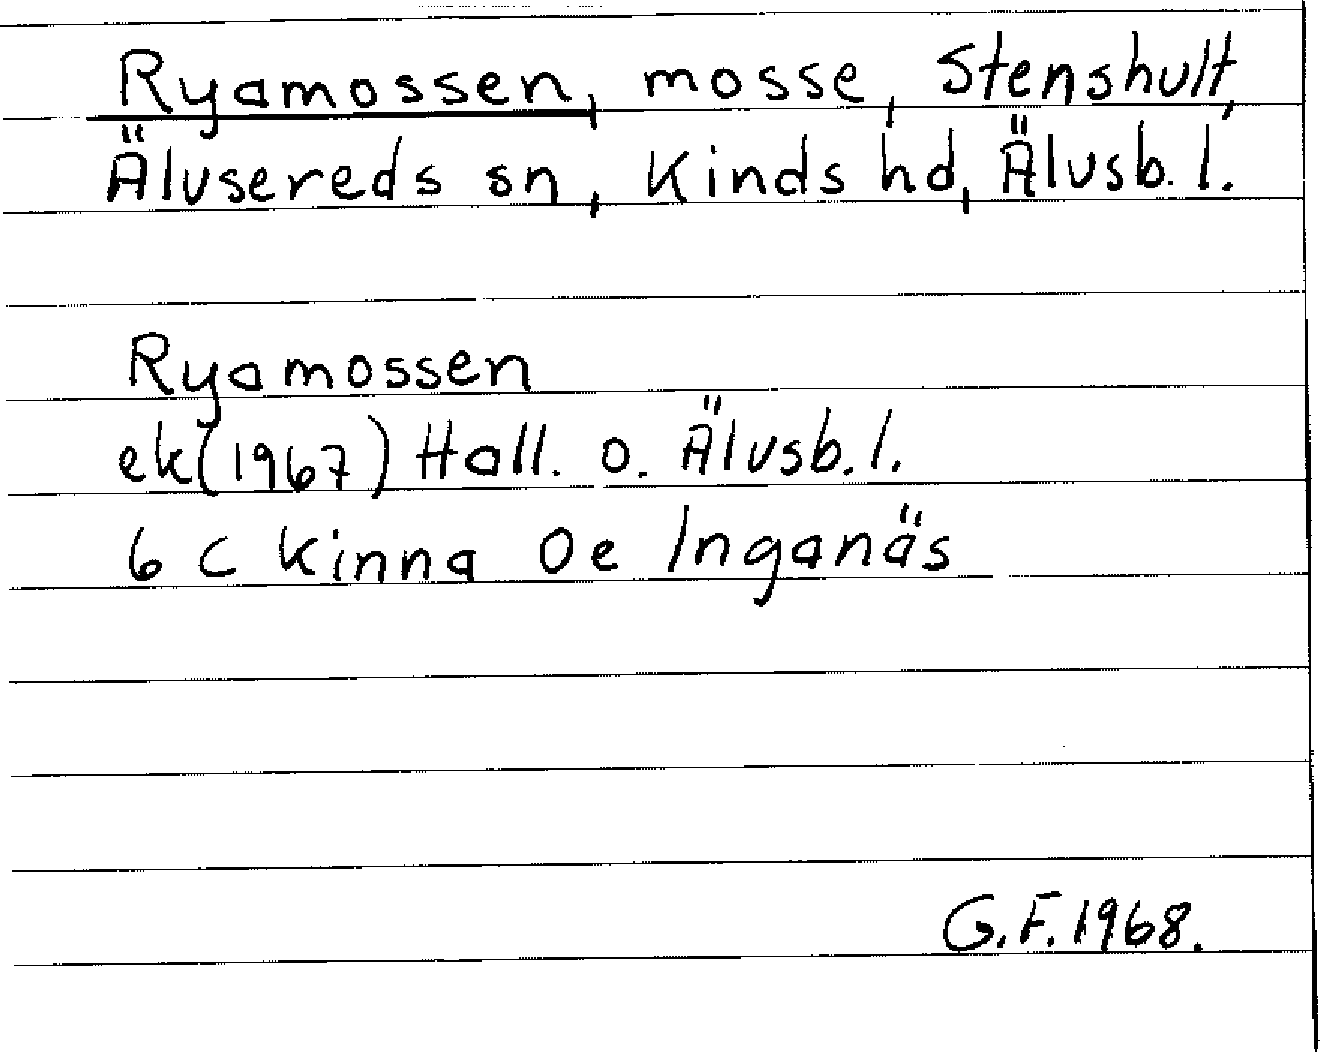 Ryamossen, mosse, Stenshult,
Älvsereds sn, Kinds hd, Älvsb. l.
Ryamossen
ek(1967) Hall. o. Älvsb. l.
6 C Kinna 0e Inganäs
G.F. 1968.